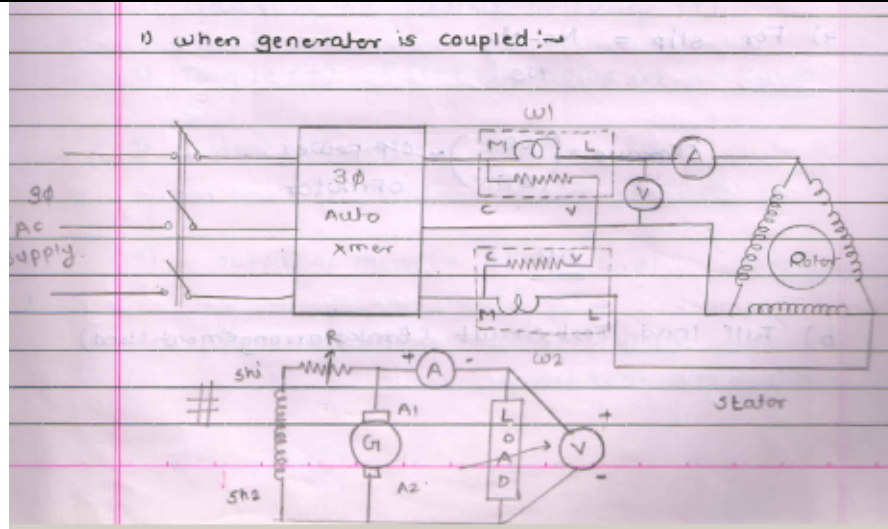 1) when generator is coupled:~
3ϕ
AC
supply.
3ϕ
Auto
xmer
W1
M L
C V
A
V
C V
M L
W2
Rotor
Stator
#
Sh1
R
+ A -
A1
G
A2
Sh2
LOAD
+
V
-